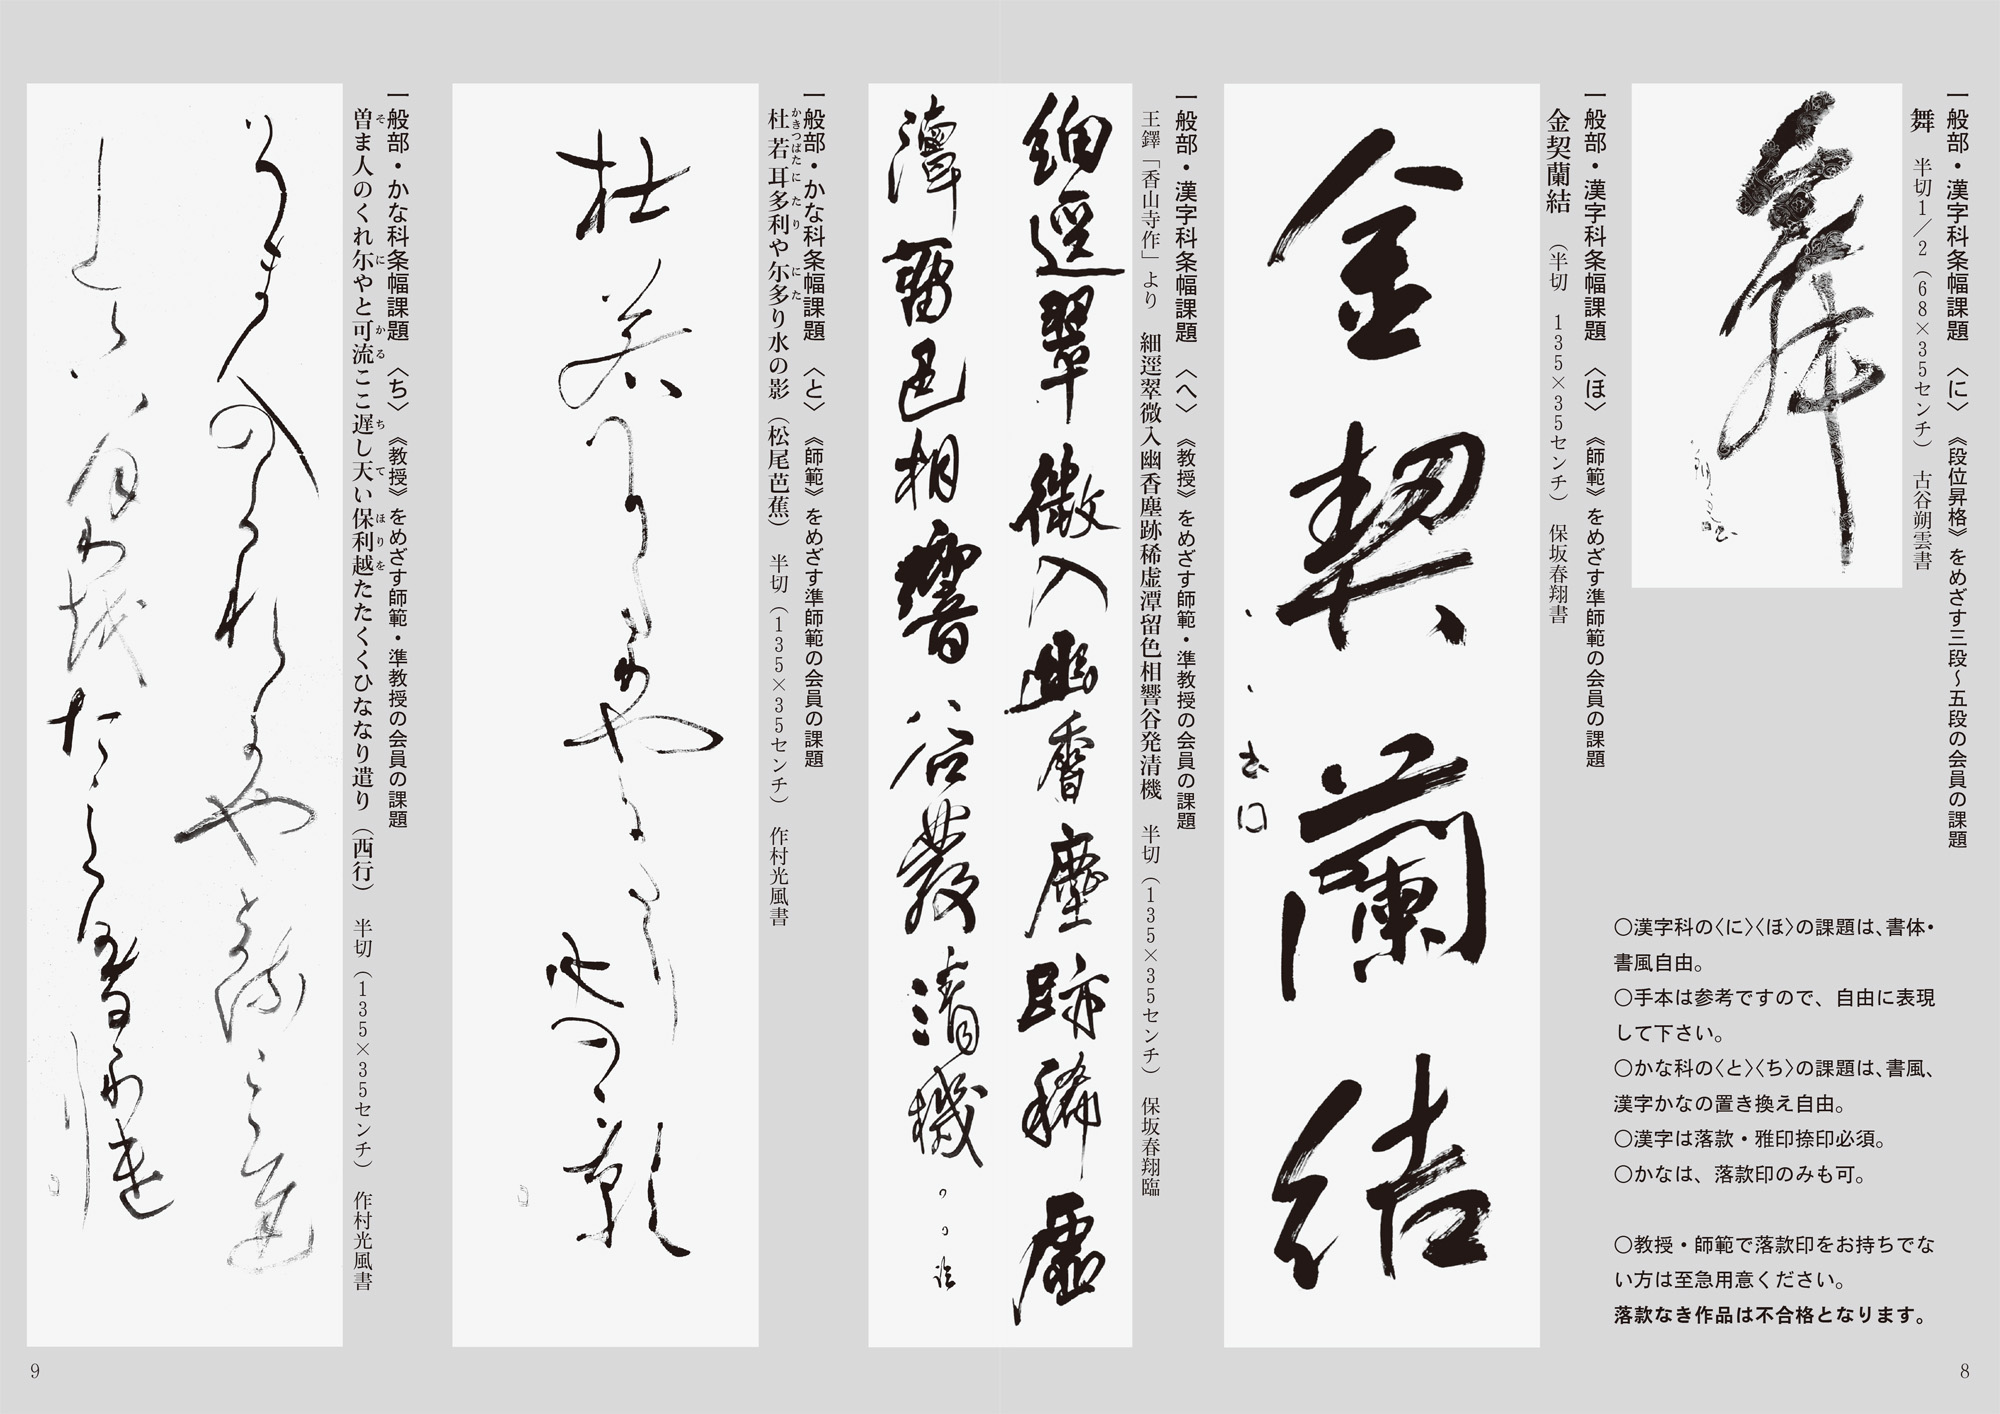 一般部・漢字科条幅課題 〈に〉 《段位昇格》をめざす三段〜五段の会員の課題
舞 半切1／2（68×35センチ） 古谷朔雲書
舞
○漢字科の〈に〉〈ほ〉の課題は、書体・
書風自由。
○手本は参考ですので、自由に表現
して下さい。
○かな科の〈と〉〈ち〉の課題は、書風、
漢字かなの置き換え自由。
○漢字は落款・雅印捺印必須。
○かなは、落款印のみも可。
○教授・師範で落款印をお持ちでな
い方は至急用意ください。
落款なき作品は不合格となります。
一般部・漢字科条幅課題 〈ほ〉 《師範》をめざす準師範の会員の課題
金契蘭結 （半切 135×35センチ） 保坂春翔書
金契蘭結
一般部・漢字科条幅課題 〈へ〉 《教授》をめざす師範・準教授の会員の課題
王鐸「香山寺作」より 細逕翠微入幽香塵跡稀虚潭留色相響谷発清機 半切（135×35センチ） 保坂春翔臨
細逕翠微入幽香塵跡稀虚
潭留色相響谷發清機
一般部・かな科条幅課題 〈と〉 《師範》をめざす準師範の会員の課題
かきつばた に た り に た
杜若耳多利や尓多り水の影（松尾芭蕉） 半切（135×35センチ） 作村光風書
杜若耳多利
や尓多り
水の影
一般部・かな科条幅課題 〈ち〉 《教授》をめざす師範・準教授の会員の課題
そ に か る ち て ほ り を
曽ま人のくれ尓やと可流ここ遅し天い保利越たたくくひななり遣り（西行） 半切（135×35センチ） 作村光風書
8
9